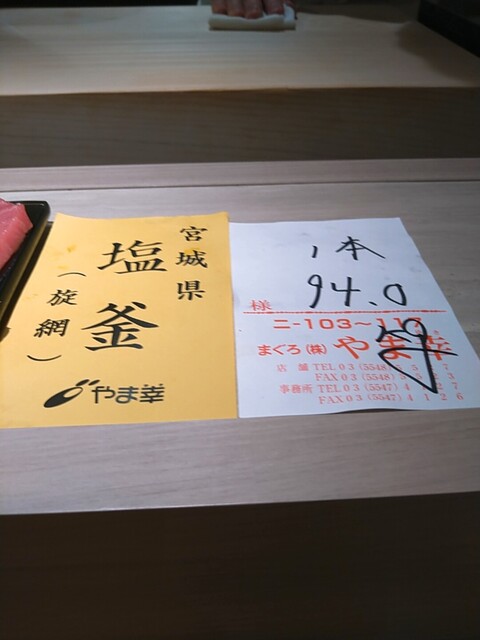 宮城県
塩釜
(旋網)
やま幸
1本
94.0
様
ニ-103~11
まぐろ(株)やま幸
店舗 TEL 03(5548)
FAX 03(5548)
事務所 TEL 03(5547)
FAX 03(5547)4126